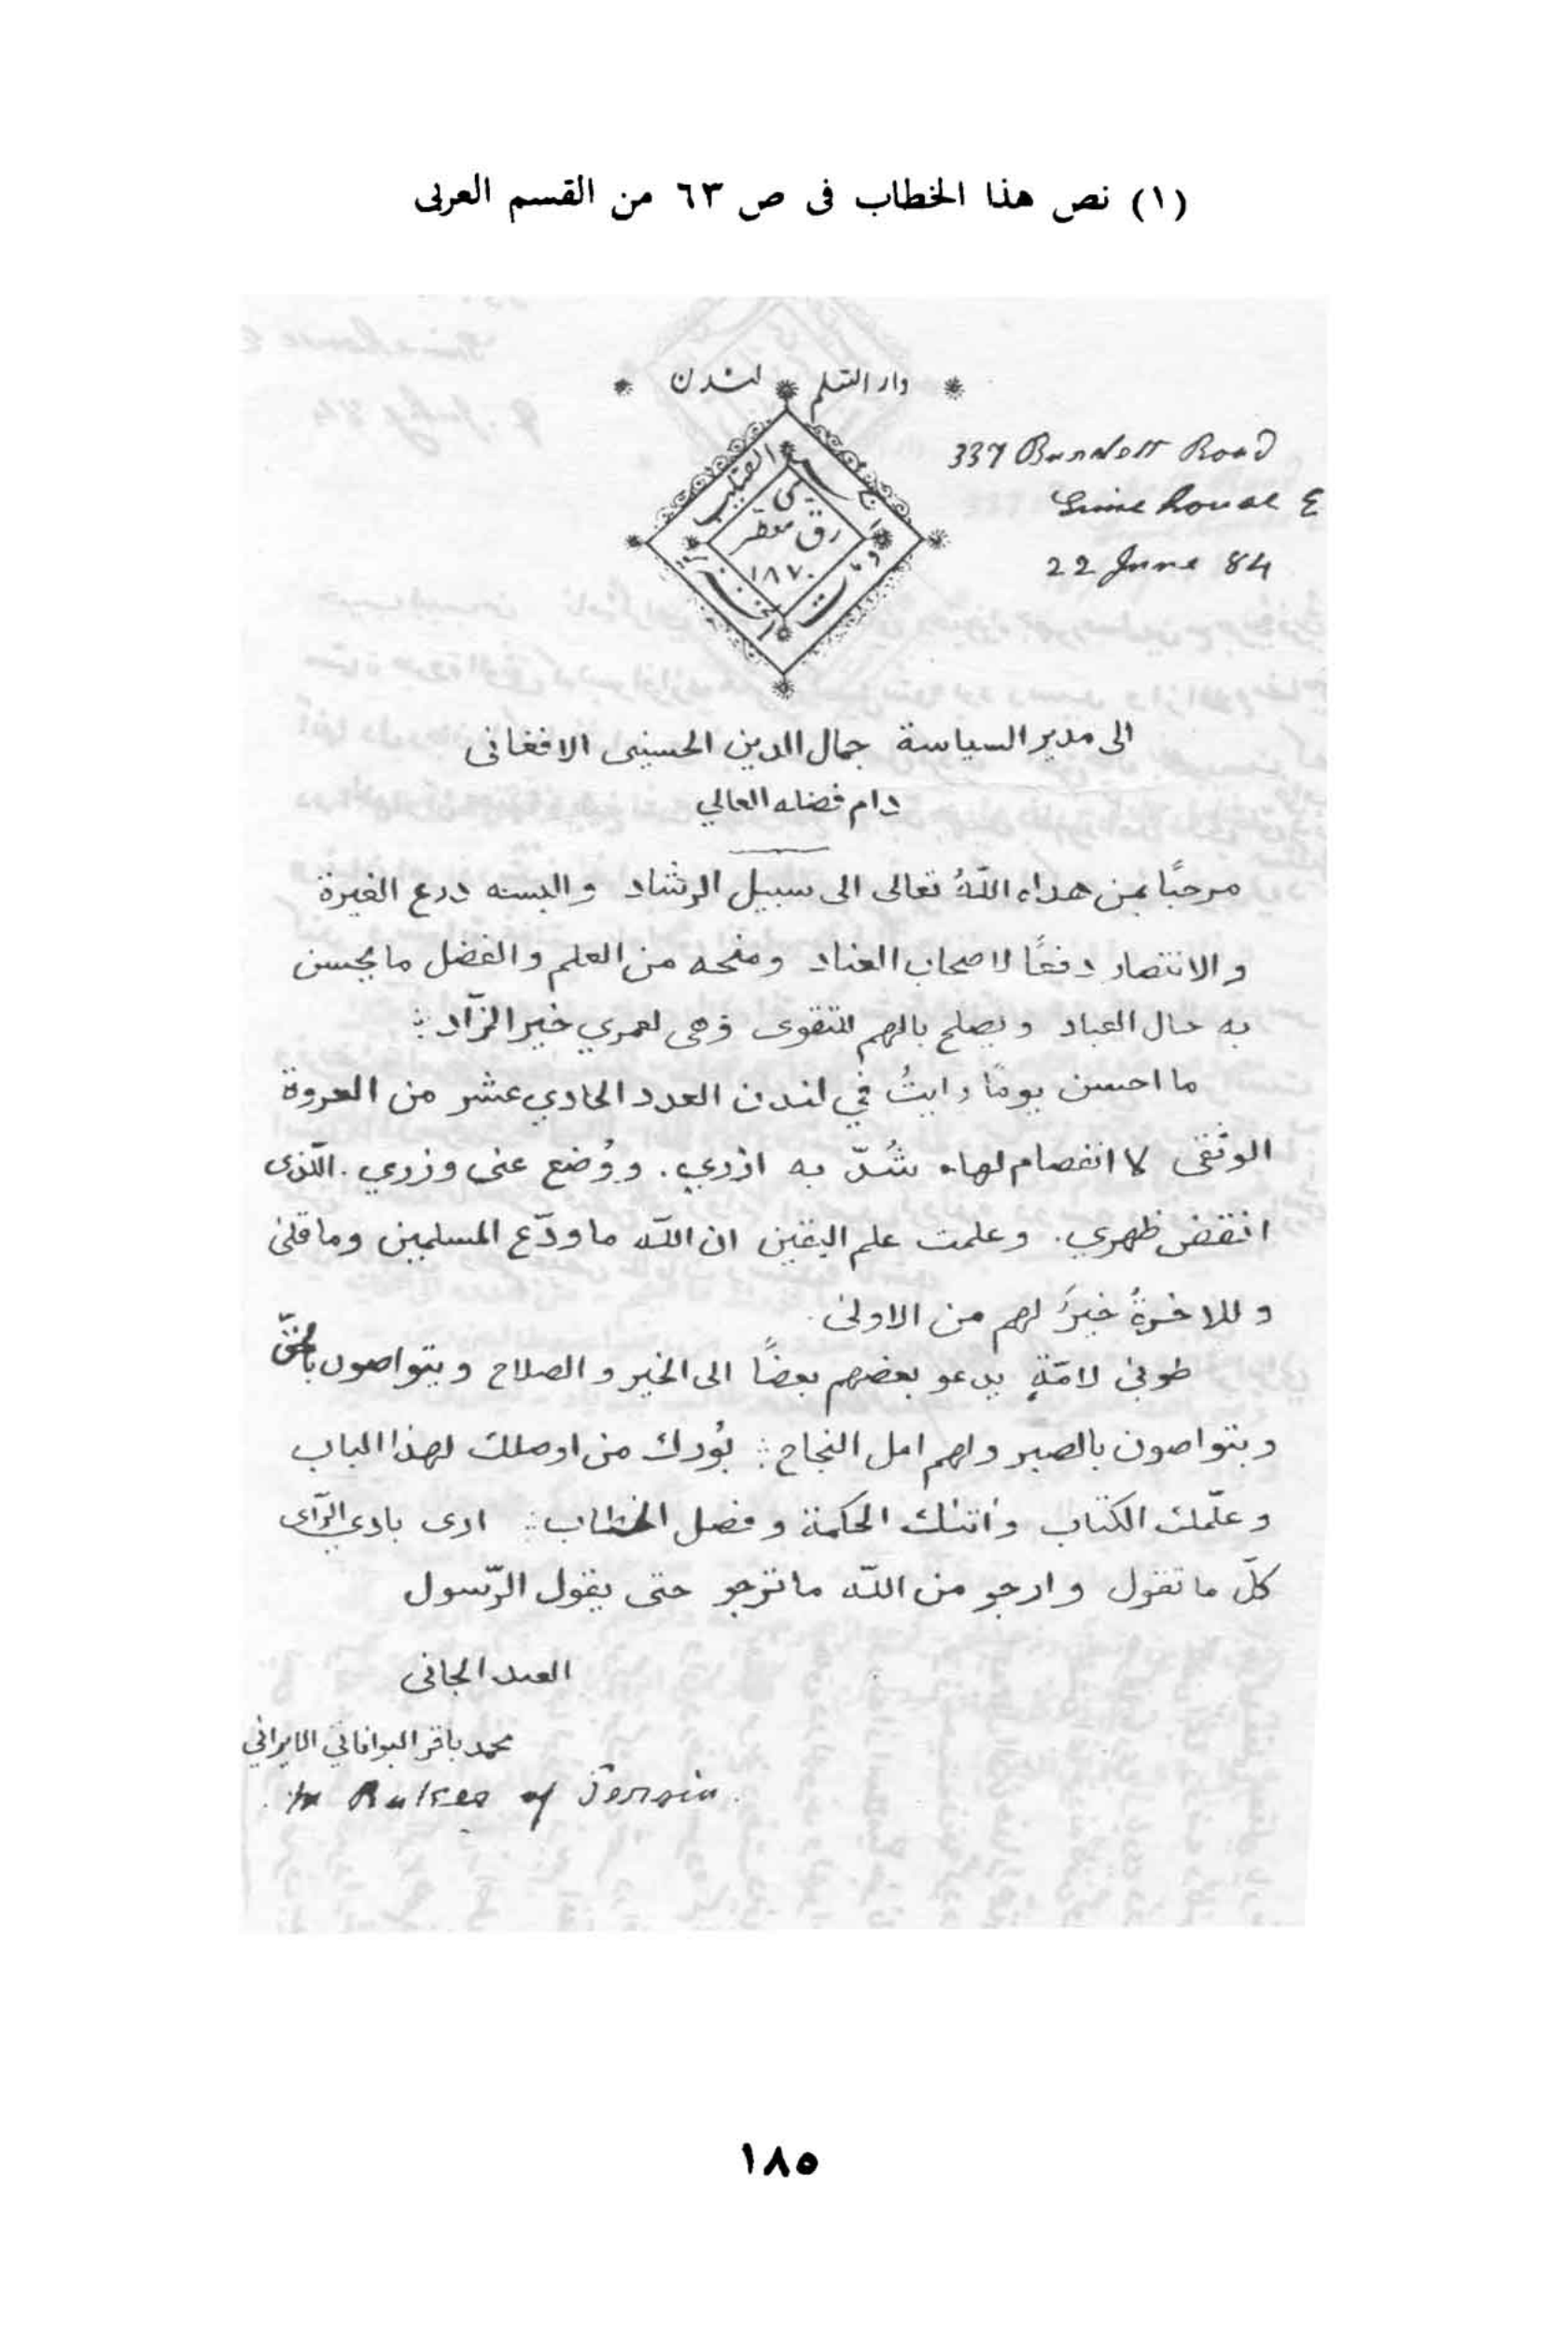 (١) نص هذا الخطاب فى ص ٦٣ من القسم العربى
دار السّلم لندن
337 Burdett Road
Limehouse E
22 June 84
رق معطّر
١٨٧٠
الى مدير السياسة جمال الدين الحسينى الافغانى
دام فضله العالي
مرحبًا بمن هداه اللّهُ تعالى الى سبيل الرشاد والبسه درع الغيرة
والانتصار دفعًا لاصحاب العناد ومنحه من العلم والفضل ما يحسن
به حال العباد ويصلح بالهم للتقوى وهى لعمري خير الزّاد
ما احسن يومًا رايتُ في لندن العدد الحادي عشر من العروة
الوثقى لا انفصام لها. شُدّ به ازري. ووُضع عنى وزري. الّذى
انقض ظهري. وعلمت علم اليقين ان اللّه ما ودّع المسلمين وما قلى
وللاخرةُ خيرُ لهم من الاولى.
طوبى لامّةٍ يدعو بعضهم بعضًا الى الخير والصلاح ويتواصون بالحقّ
ويتواصون بالصبر ولهم امل النجاح بُورك من اوصلك لهذا الباب
وعلّمك الكتاب واتاك الحكمة وفصل الخطاب ارى بادي الرّاى
كلّ ما تقول وارجو من اللّه ما ترجو حتى يقول الرّسول
العبد الجانى
محمد باقر البواناتي الايراني